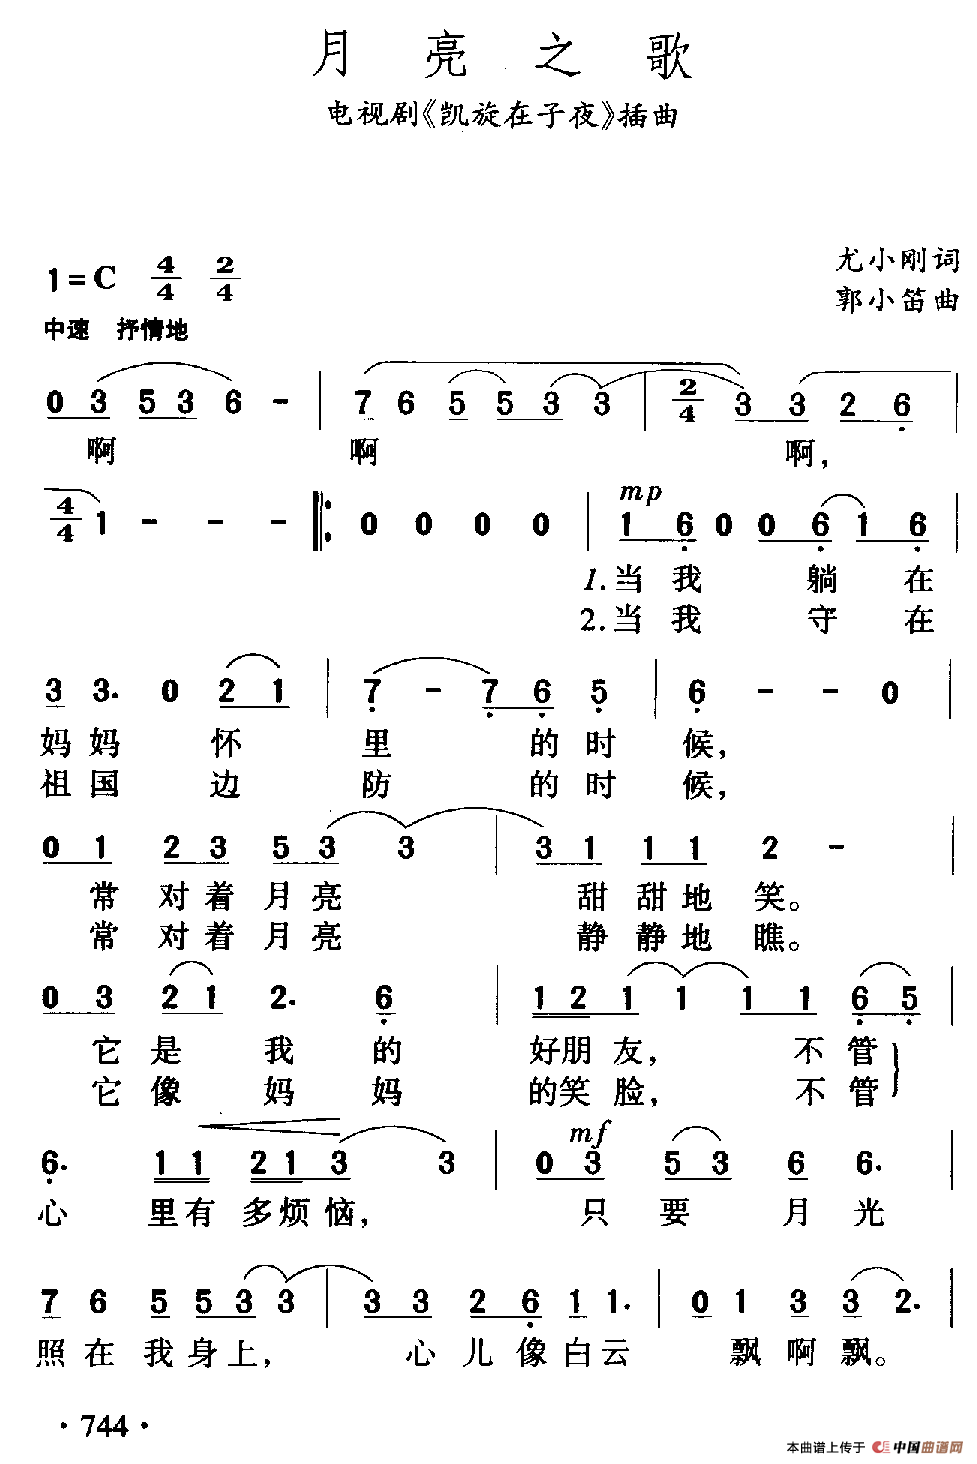 月亮之歌
电视剧《凯旋在子夜》插曲
尤小刚词
1=C 4/4 2/4
郭小笛曲
中速 抒情地
0 3 5 3 6 - | 7 6 5 5 3 3 | 2/4 3 3 2 6 |
啊 啊 啊,
4/4 1 - - - ‖: 0 0 0 0 | mp 1 6 0 0 6 1 6 |
1.当我 躺 在
2.当我 守 在
3 3. 0 2 1 | 7 - 7 6 5 | 6 - - 0 |
妈妈 怀 里 的时 候,
祖国 边 防 的时 候,
0 1 2 3 5 3 3 | 3 1 1 1 2 - |
常 对着月亮 甜 甜地 笑。
常 对着月亮 静 静地 瞧。
0 3 2 1 2. 6 | 1 2 1 1 1 1 6 5 |
它 是 我 的 好朋 友, 不 管
它 像 妈 妈 的笑 脸, 不 管
6. 1 1 2 1 3 3 | mf 0 3 5 3 6 6. |
心 里有 多烦恼, 只 要 月 光
7 6 5 5 3 3 | 3 3 2 6 1 1. | 0 1 3 3 2. |
照在 我身上, 心 儿像白云 飘啊飘。
·744·
本曲谱上传于 中国曲谱网